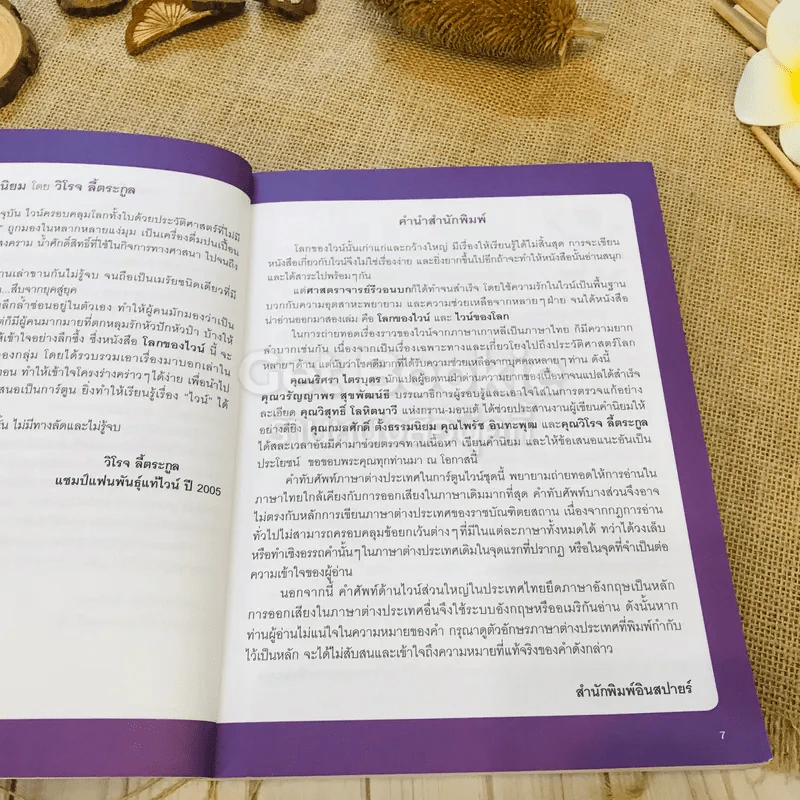 นิยม โดย วิโรจ ลี้ตระกูล
จุบัน ไวน์ครอบคลุมโลกทั้งใบด้วยประวัติศาสตร์ที่ไม่มี
ถูกมองในหลากหลายแง่มุม เป็นเครื่องดื่มปนเปื้อน
งคราม น้ำศักดิ์สิทธิ์ที่ใช้ในกิจการทางศาสนา ไปจนถึง
านเล่าขานกันไม่รู้จบ จนถือเป็นเมรัยชนิดเดียวที่มี
...สืบจากยุคสู่ยุค
ลึกล้ำซ่อนอยู่ในตัวเอง ทำให้ผู้คนมักมองว่าเป็น
ต่ก็มีผู้คนมากมายที่ตกหลุมรักหัวปักหัวปำ บ้างให้
ห้เข้าใจอย่างลึกซึ้ง ซึ่งหนังสือ โลกของไวน์ นี้ จะ
องกลุ่ม โดยได้รวบรวมเอาเรื่องมาบอกเล่าใน
ทอน ทำให้เข้าใจโครงร่างคร่าวๆได้ง่าย เพื่อนำไป
สนอเป็นการ์ตูน ยิ่งทำให้เรียนรู้เรื่อง "ไวน์" ได้
ั้น ไม่มีทางลัดและไม่รู้จบ
วิโรจ ลี้ตระกูล
แชมป์แฟนพันธุ์แท้ไวน์ ปี 2005
คำนำสำนักพิมพ์
โลกของไวน์นั้นเก่าแก่และกว้างใหญ่ มีเรื่องให้เรียนรู้ได้ไม่สิ้นสุด การจะเขียน
หนังสือเกี่ยวกับไวน์จึงไม่ใช่เรื่องง่าย และยิ่งยากขึ้นไปอีกถ้าจะทำให้หนังสือนั้นอ่านสนุก
และได้สาระไปพร้อมๆกัน
แต่ศาสตราจารย์รีวอนบกก็ได้ทำจนสำเร็จ โดยใช้ความรักในไวน์เป็นพื้นฐาน
บวกกับความอุตสาหะพยายาม และความช่วยเหลือจากหลายๆฝ่าย จนได้หนังสือ
น่าอ่านออกมาสองเล่ม คือ โลกของไวน์ และ ไวน์ของโลก
ในการถ่ายทอดเรื่องราวของไวน์จากภาษาเกาหลีเป็นภาษาไทย ก็มีความยาก
ลำบากเช่นกัน เนื่องจากเป็นเรื่องเฉพาะทางและเกี่ยวโยงไปถึงประวัติศาสตร์โลก
หลายๆด้าน แต่นับว่าโชคดีมากที่ได้รับความช่วยเหลือจากบุคคลหลายๆท่าน ดังนี้
คุณนริศรา ไตรบุตร นักแปลผู้อดทนฝ่าฟันความยากของเนื้อหาจนแปลได้สำเร็จ
คุณวรัญญาพร สุขพัฒน์ธี บรรณาธิการผู้รอบรู้และเอาใจใส่ในการตรวจแก้อย่าง
ละเอียด คุณวิสุทธิ์ โลหิตนาวี แห่งกราน-มอนเต้ ได้ช่วยประสานงานผู้เขียนคำนิยมให้
อย่างดียิ่ง คุณกมลศักดิ์ ตั้งธรรมนิยม คุณไพรัช อินทะพุฒ และคุณวิโรจ ลี้ตระกูล
ได้สละเวลาอันมีค่ามาช่วยตรวจทานเนื้อหา เขียนคำนิยม และให้ข้อเสนอแนะอันเป็น
ประโยชน์ ขอขอบพระคุณทุกท่านมา ณ โอกาสนี้
คำทับศัพท์ภาษาต่างประเทศในการ์ตูนไวน์ชุดนี้ พยายามถ่ายทอดให้การอ่านใน
ภาษาไทยใกล้เคียงกับการออกเสียงในภาษาเดิมมากที่สุด คำทับศัพท์บางส่วนจึงอาจ
ไม่ตรงกับหลักการเขียนภาษาต่างประเทศของราชบัณฑิตยสถาน เนื่องจากกฎการอ่าน
ทั่วไปไม่สามารถครอบคลุมข้อยกเว้นต่างๆที่มีในแต่ละภาษาทั้งหมดได้ ทว่าได้วงเล็บ
หรือทำเชิงอรรถคำนั้นๆในภาษาต่างประเทศเดิมในจุดแรกที่ปรากฏ หรือในจุดที่จำเป็นต่อ
ความเข้าใจของผู้อ่าน
นอกจากนี้ คำศัพท์ด้านไวน์ส่วนใหญ่ในประเทศไทยยึดภาษาอังกฤษเป็นหลัก
การออกเสียงในภาษาต่างประเทศอื่นจึงใช้ระบบอังกฤษหรืออเมริกันอ่าน ดังนั้นหาก
ท่านผู้อ่านไม่แน่ใจในความหมายของคำ กรุณาดูตัวอักษรภาษาต่างประเทศที่พิมพ์กำกับ
ไว้เป็นหลัก จะได้ไม่สับสนและเข้าใจถึงความหมายที่แท้จริงของคำดังกล่าว
สำนักพิมพ์อินสปายร์
7